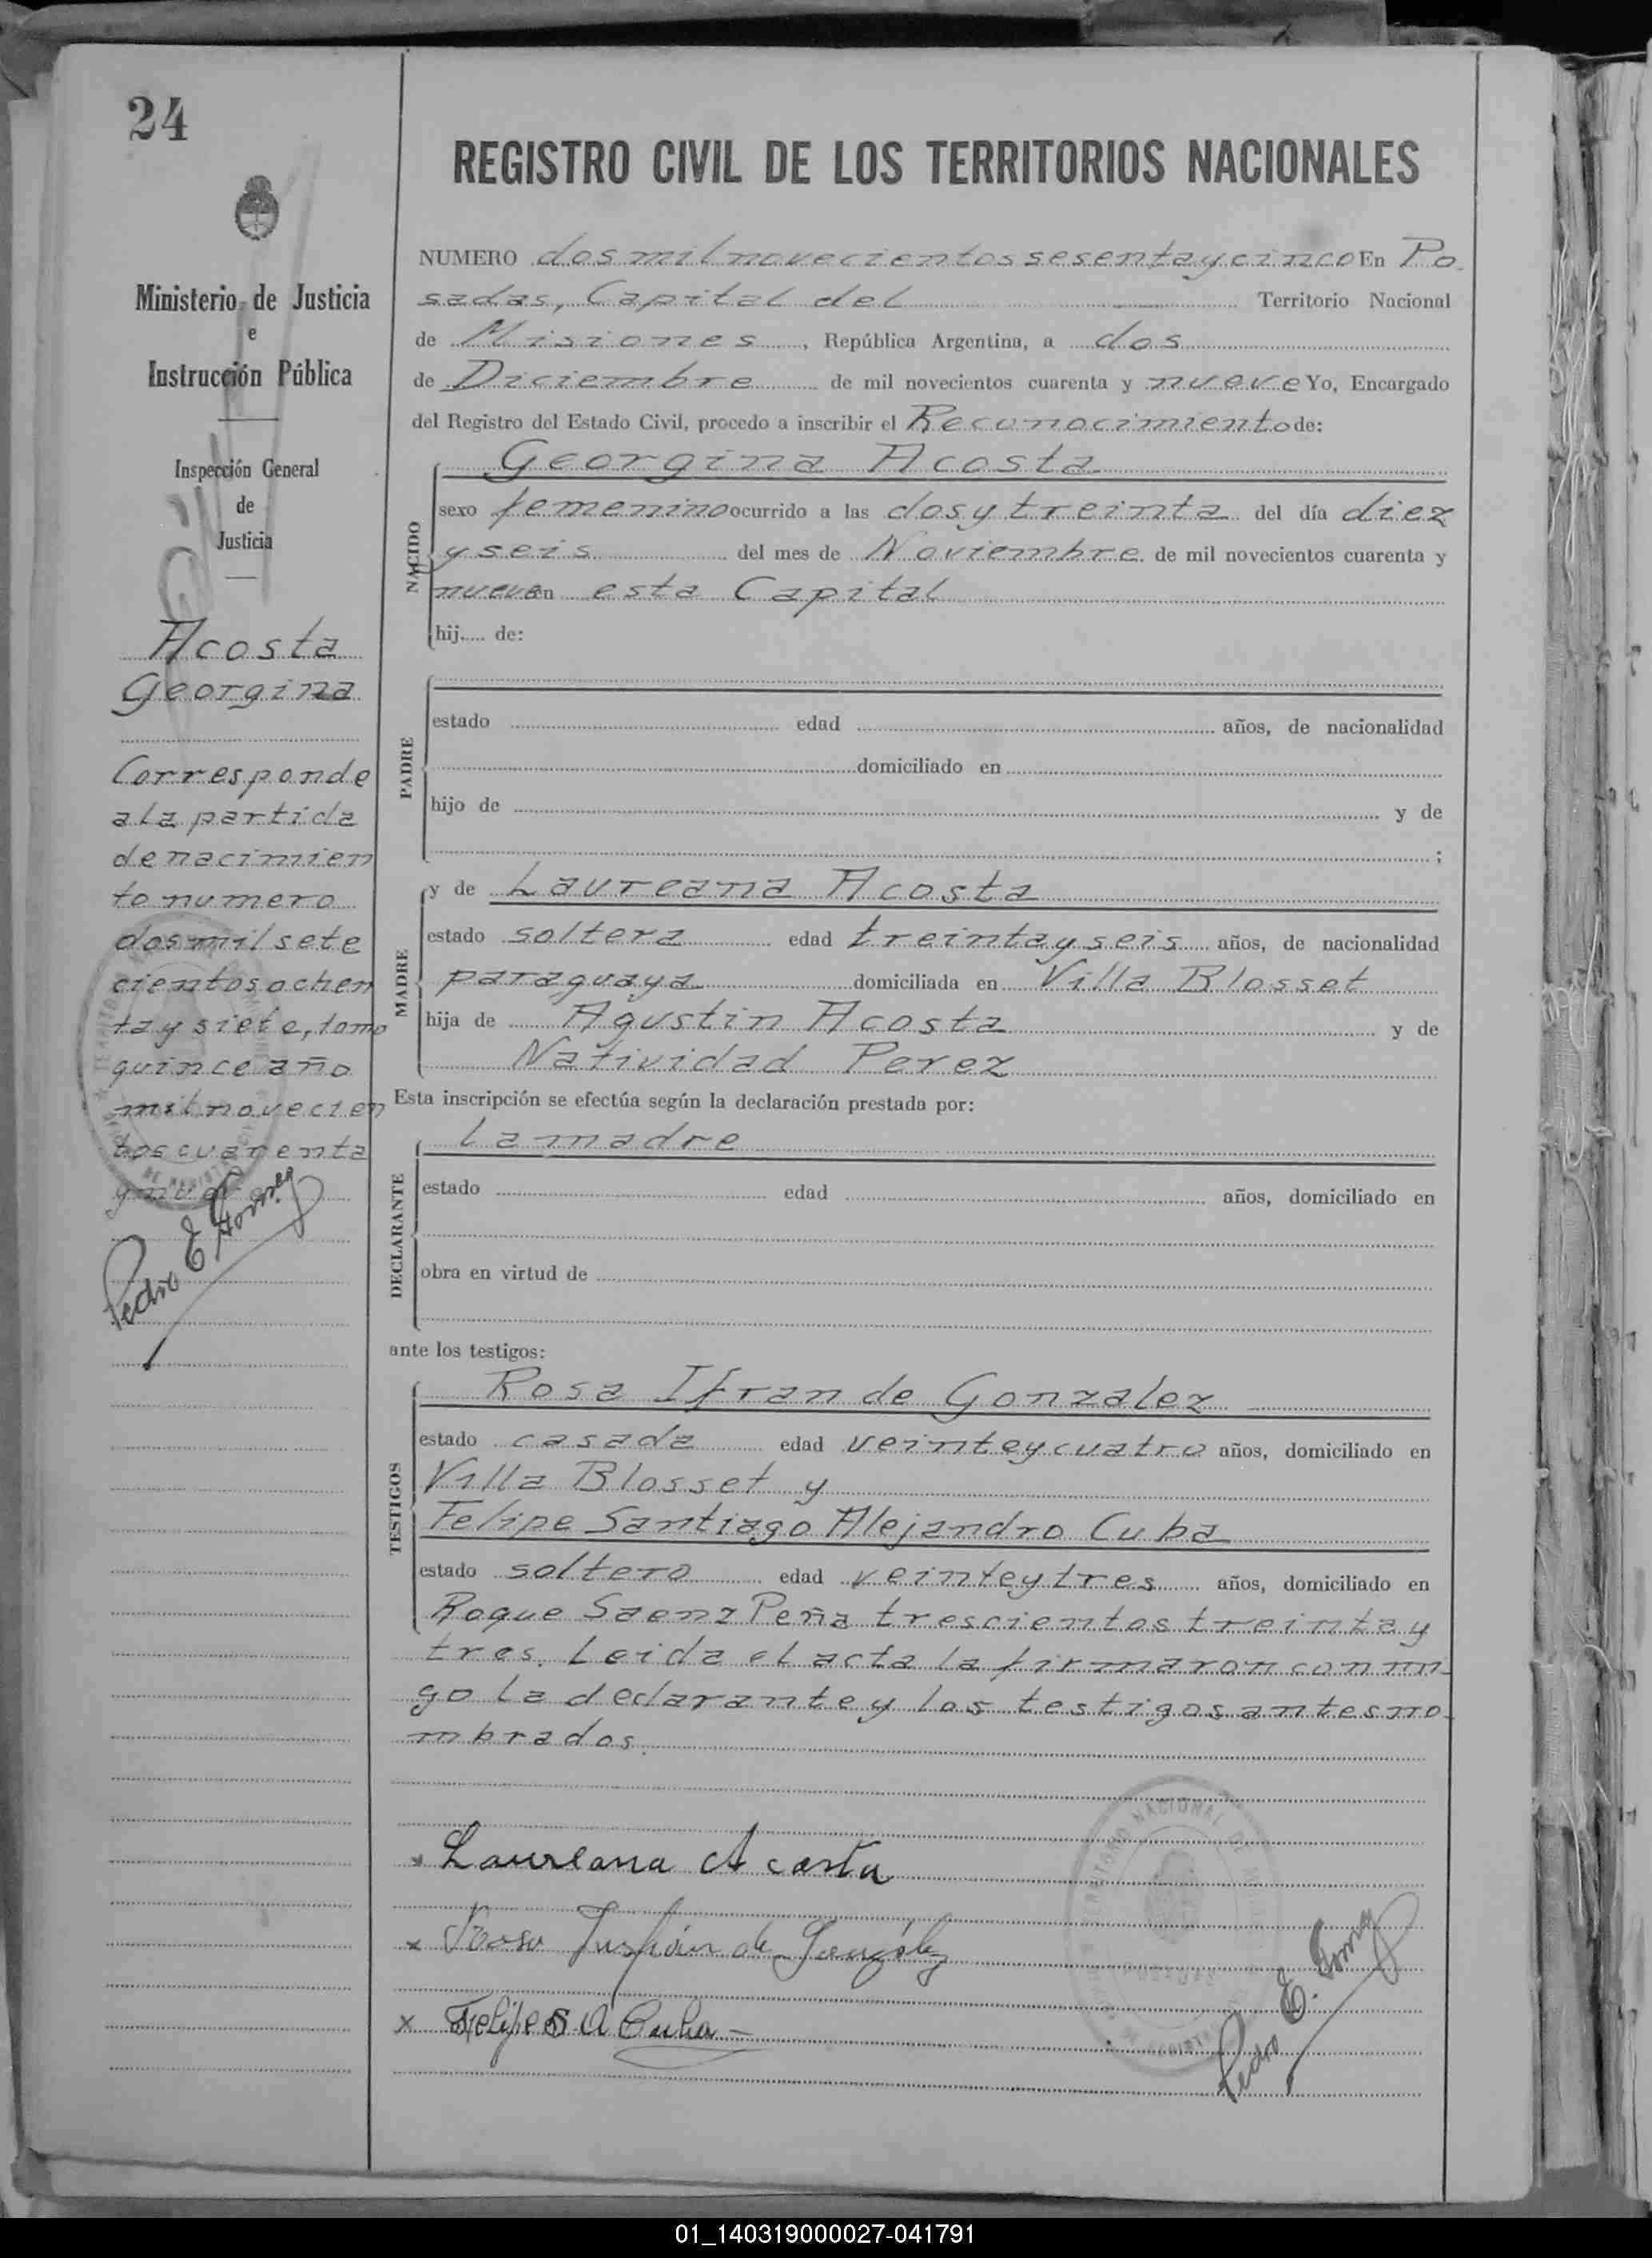 24
REGISTRO CIVIL DE LOS TERRITORIOS NACIONALES
Ministerio de Justicia
e
Instrucción Pública
Inspección General
de
Justicia
Acosta
Georgina
Corresponde
a la partida
de nacimien
to numero
dos mil sete
cientos ochen
ta y siete, tomo
quince año
mil novecien
tos cuarenta
y nueve
Pedro E. Gomez
NUMERO dos mil novecientos sesenta y cinco En Po-
sadas, Capital del Territorio Nacional
de Misiones, República Argentina, a dos
de Diciembre de mil novecientos cuarenta y nueve Yo, Encargado
del Registro del Estado Civil, procedo a inscribir el Reconocimiento de:
NACIDO
Georgina Acosta
sexo femenino ocurrido a las dos y treinta del día diez
y seis del mes de Noviembre de mil novecientos cuarenta y
nueve en esta Capital
hij..... de:
PADRE
estado edad años, de nacionalidad
domiciliado en
hijo de y de
;
MADRE
y de Laureana Acosta
estado soltera edad treinta y seis años, de nacionalidad
paraguaya domiciliada en Villa Blosset
hija de Agustin Acosta y de
Natividad Perez
Esta inscripción se efectúa según la declaración prestada por:
DECLARANTE
La madre
estado edad años, domiciliado en
obra en virtud de
ante los testigos:
TESTIGOS
Rosa Ifran de Gonzalez
estado casada edad veinte y cuatro años, domiciliado en
Villa Blosset y
Felipe Santiago Alejandro Cuba
estado soltero edad veinte y tres años, domiciliado en
Roque Saenz Peña trescientos treinta y
tres. Leida el acta la firmaron conmi-
go la declarante y los testigos antes no-
mbrados.
x Laureana Acosta
x Rosa de Gonzalez
x Felipe S A Cuba
Pedro E. Gomez
01_140319000027-041791